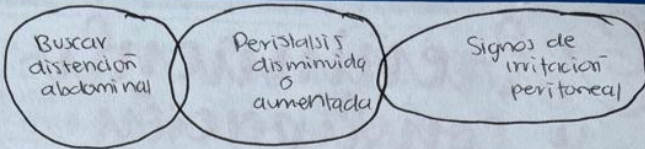 Buscar
distención
abdominal
Peristalsis
disminuida
o
aumentada
Signos de
irritación
peritoneal